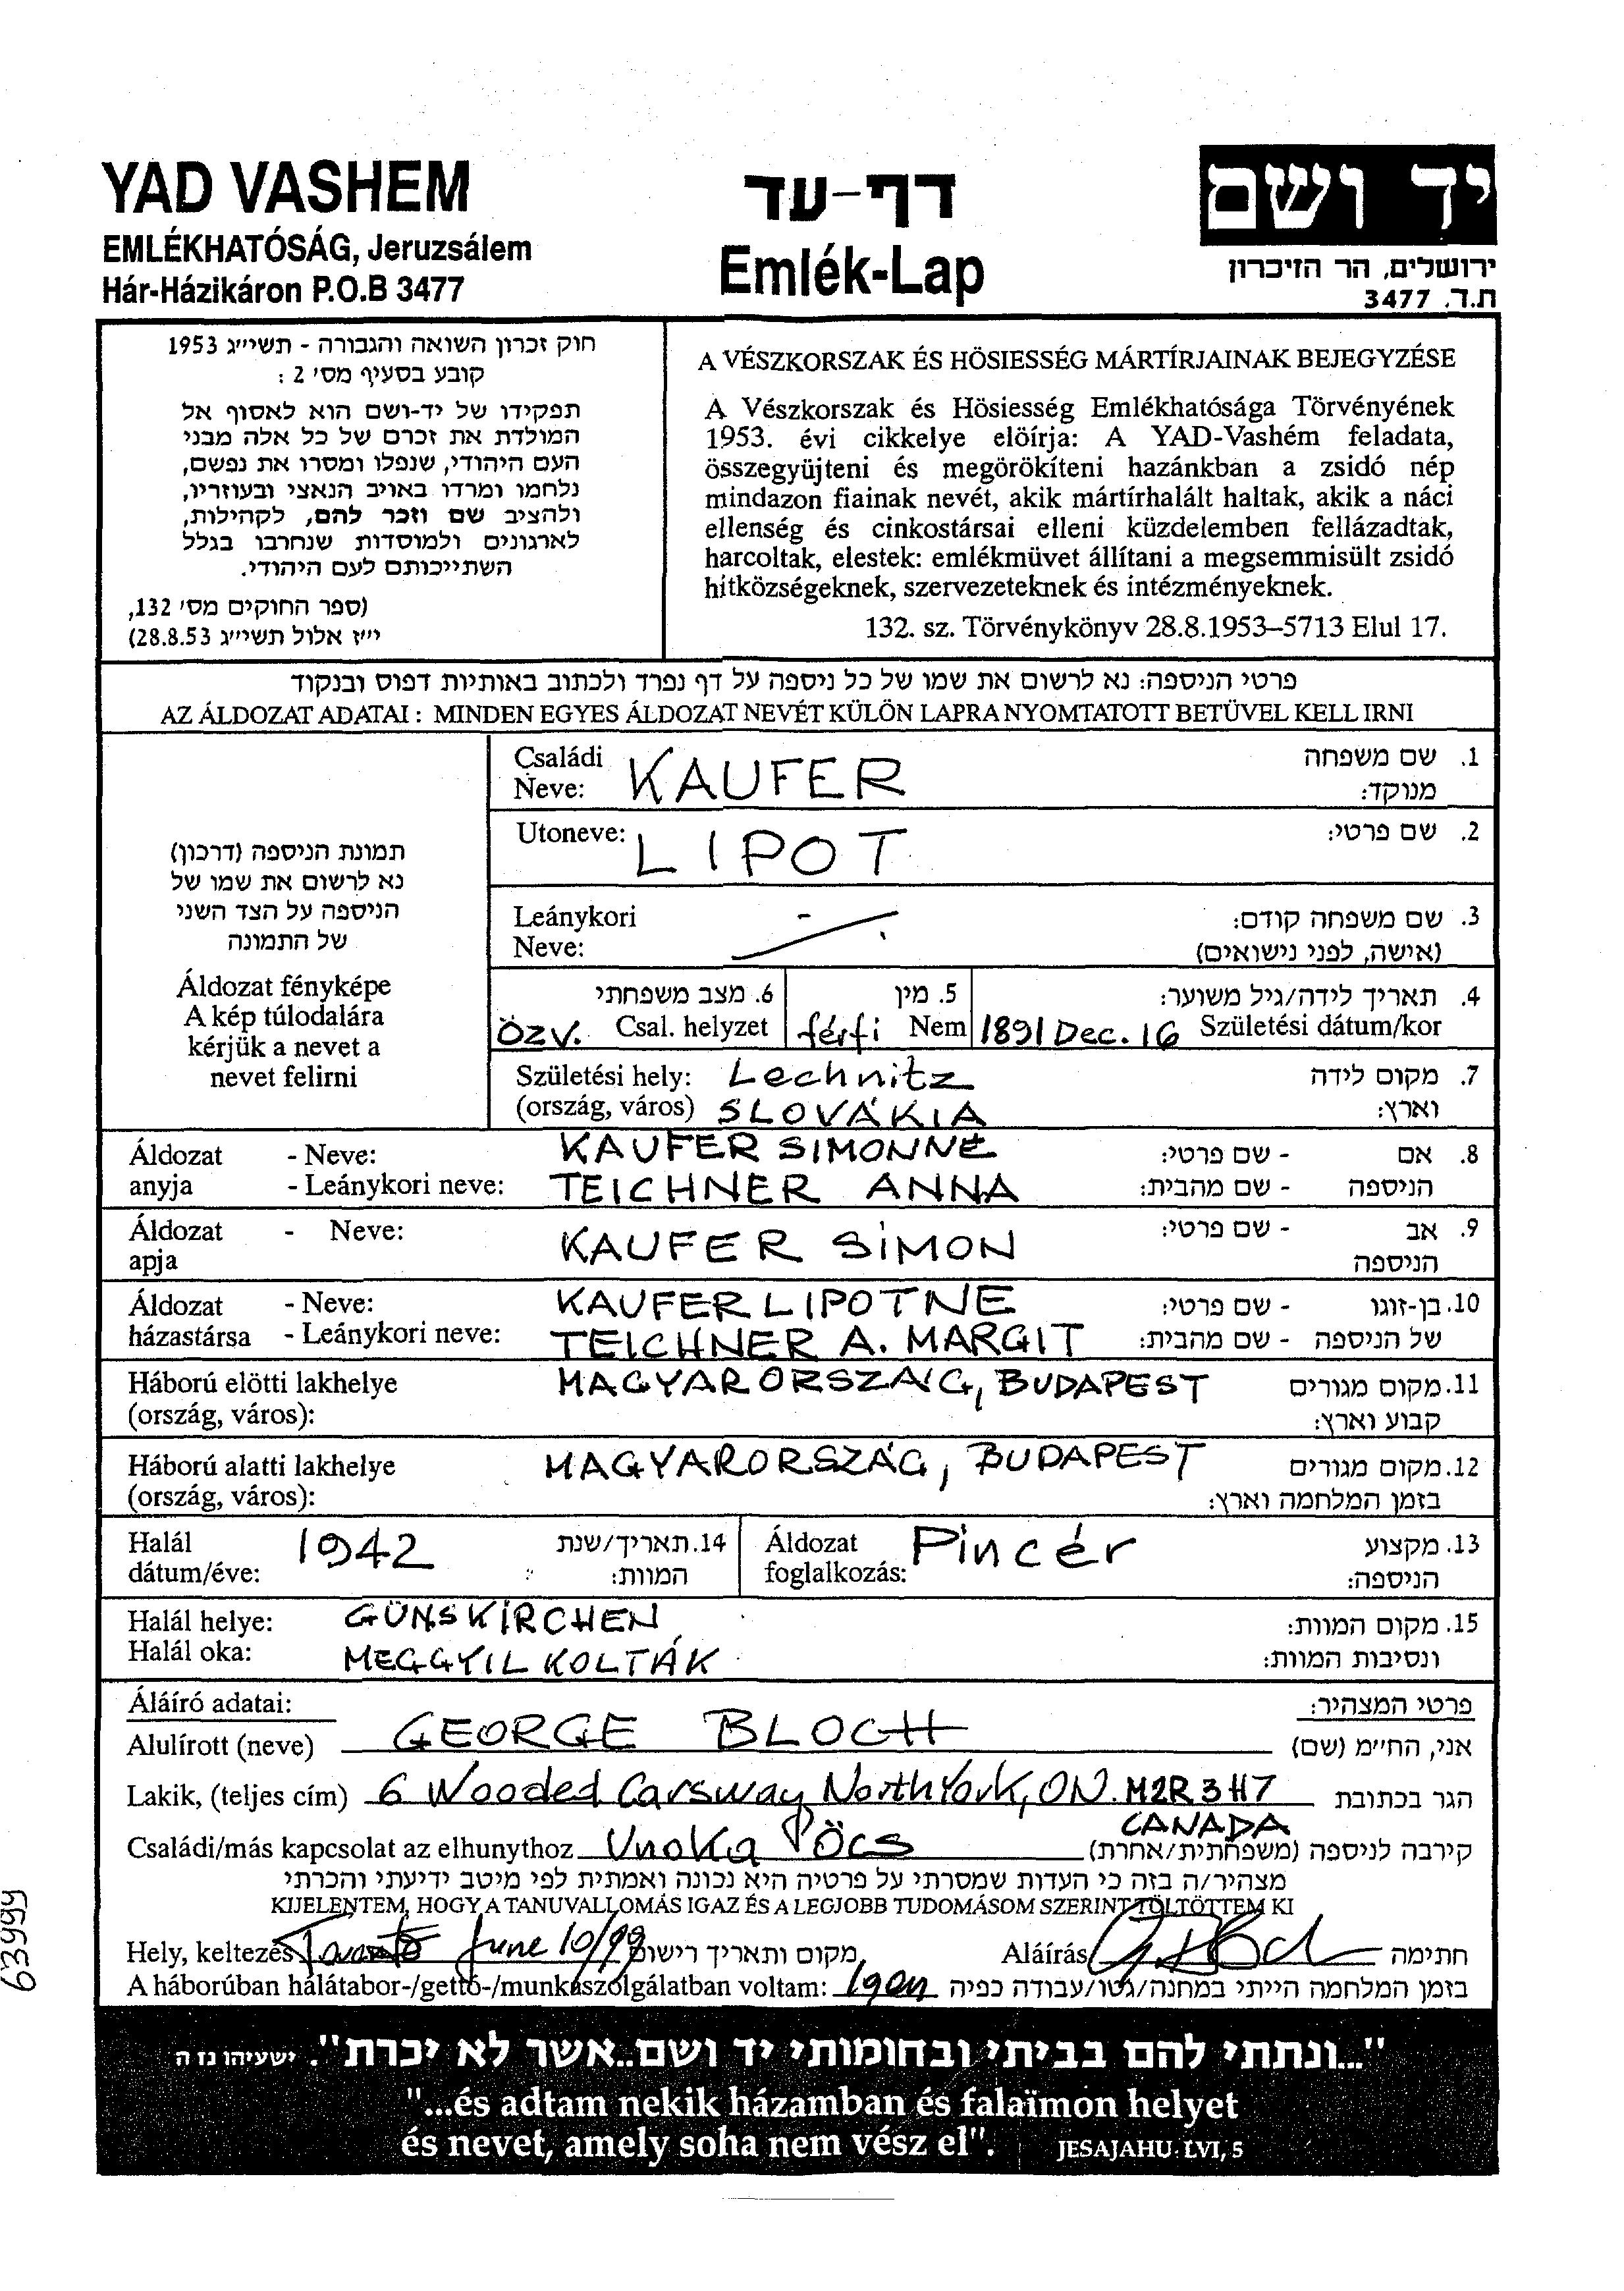 YAD VASHEM
EMLÉKHATÓSÁG, Jeruzsálem
Hár-Házikáron P.O.B 3477
דף-עד
Emlék-Lap
יד ושם
ירושלים, הר הזיכרון
ת.ד. 3477
חוק זכרון השואה והגבורה - תשי״ג 1953
קובע בסעיף מס׳ 2 :
תפקידו של יד-ושם הוא לאסוף אל
המולדת את זכרם של כל אלה מבני
העם היהודי, שנפלו ומסרו את נפשם,
נלחמו ומרדו באויב הנאצי ובעוזריו,
ולהציב שם וזכר להם, לקהילות,
לארגונים ולמוסדות שנחרבו בגלל
השתייכותם לעם היהודי.
(ספר החוקים מס׳ 132,
י״ז אלול תשי״ג 28.8.53)
A VÉSZKORSZAK ÉS HÖSIESSÉG MÁRTÍRJAINAK BEJEGYZÉSE
A Vészkorszak és Hösiesség Emlékhatósága Törvényének
1953. évi cikkelye elöírja: A YAD-Vashém feladata,
összegyüjteni és megörökíteni hazánkban a zsidó nép
mindazon fiainak nevét, akik mártírhalált haltak, akik a náci
ellenség és cinkostársai elleni küzdelemben fellázadtak,
harcoltak, elestek: emlékmüvet állítani a megsemmisült zsidó
hitközségeknek, szervezeteknek és intézményeknek.
132. sz. Törvénykönyv 28.8.1953–5713 Elul 17.
פרטי הניספה: נא לרשום את שמו של כל ניספה על דף נפרד ולכתוב באותיות דפוס ובנקוד
AZ ÁLDOZAT ADATAI : MINDEN EGYES ÁLDOZAT NEVÉT KÜLÖN LAPRA NYOMTATOTT BETÜVEL KELL IRNI
תמונת הניספה (דרכון)
נא לרשום את שמו של
הניספה על הצד השני
של התמונה
Áldozat fényképe
A kép túlodalára
kérjük a nevet a
nevet felirni
Családi Neve: KAUFER 1. שם משפחה מנוקד:
Utoneve: LIPOT 2. שם פרטי:
Leánykori Neve: 3. שם משפחה קודם: (אישה, לפני נישואים)
6. מצב משפחתי 5. מין 4. תאריך לידה/גיל משוער:
ÖZV. Csal. helyzet férfi Nem 1891 Dec. 16 Születési dátum/kor
Születési hely: Lechnitz 7. מקום לידה
(ország, város) SLOVÁKIA וארץ:
Áldozat - Neve: KAUFER SIMONNÉ 8. אם - שם פרטי:
anyja - Leánykori neve: TEICHNER ANNA הניספה - שם מהבית:
Áldozat - Neve: KAUFER SIMON 9. אב - שם פרטי:
apja הניספה
Áldozat - Neve: KAUFER LIPOTNE 10. בן-זוגו - שם פרטי:
házastársa - Leánykori neve: TEICHNER A. MARGIT של הניספה - שם מהבית:
Háború elötti lakhelye MAGYARORSZÁG, BUDAPEST 11. מקום מגורים
(ország, város): קבוע וארץ:
Háború alatti lakhelye MAGYARORSZÁG, BUDAPEST 12. מקום מגורים
(ország, város): בזמן המלחמה וארץ:
Halál 1942 14. תאריך/שנת Áldozat Pincér 13. מקצוע
dátum/éve: המוות: foglalkozás: הניספה:
Halál helye: GÜNSKIRCHEN 15. מקום המוות:
Halál oka: MEGGYILKOLTÁK ונסיבות המוות:
Áláíró adatai: פרטי המצהיר:
Alulírott (neve) GEORGE BLOCH אני, הח״מ (שם)
Lakik, (teljes cím) 6 Wooded Carsway NorthYork, ON. M2R 3H7 הגר בכתובת
CANADA
Családi/más kapcsolat az elhunythoz Unoka Öcs קירבה לניספה (משפחתית/אחרת)
מצהיר/ה בזה כי העדות שמסרתי על פרטיה היא נכונה ואמתית לפי מיטב ידיעתי והכרתי
KIJELENTEM, HOGY A TANUVALLOMÁS IGAZ ÉS A LEGJOBB TUDOMÁSOM SZERINT TÖLTÖTTEM KI
Hely, keltezés Toronto June 10/99 מקום ותאריך רישום Aláírás חתימה
A háborúban hálátabor-/gettó-/munkaszolgálatban voltam: Igen בזמן המלחמה הייתי במחנה/גטו/עבודה כפיה
63999
"...ונתתי להם בביתי ובחומותי יד ושם..אשר לא יכרת". ישעיהו נו ה
"...és adtam nekik házamban és falaïmon helyet
és nevet, amely soha nem vész el". JESAJAHU. LVI, 5